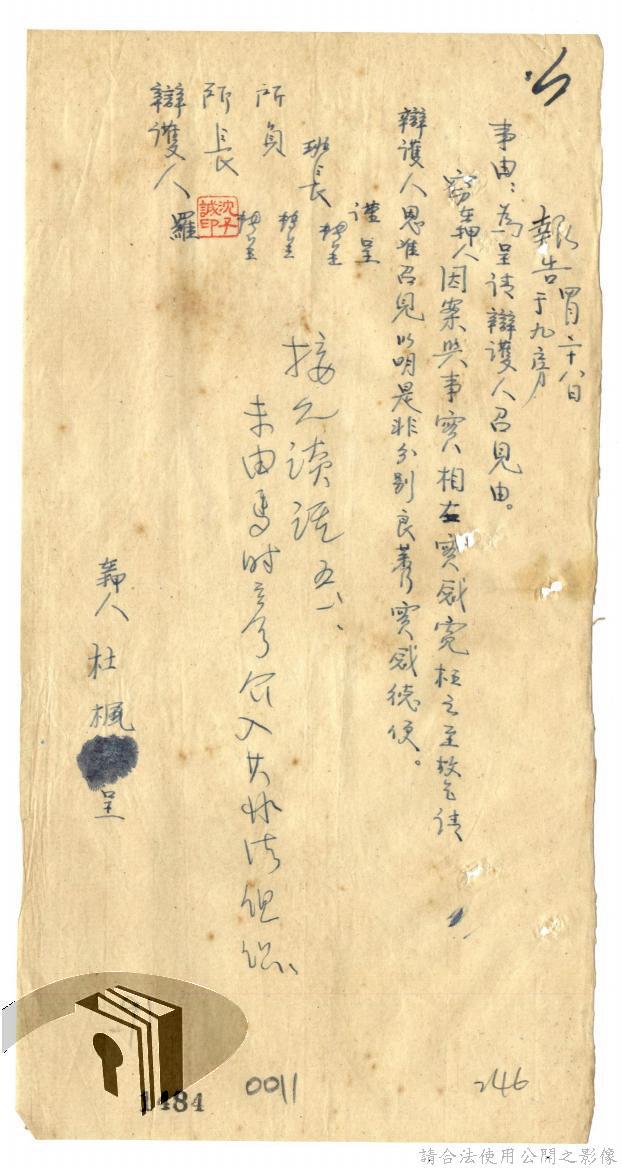 報告 四月二十八日
于九房
事由：為呈請辯護人召見由。
竊輤人因案與事實相左實感寃枉之至故乞請
辯護人恩准召見以明是非分别良莠實感德便。
謹呈
班長 轉呈
所員 轉呈
所長 轉呈
辯護人 羅
沈子誠印
未由馬時彥介入共非法组织、
杜楓 呈
1484
0011
246
請合法使用公開之影像